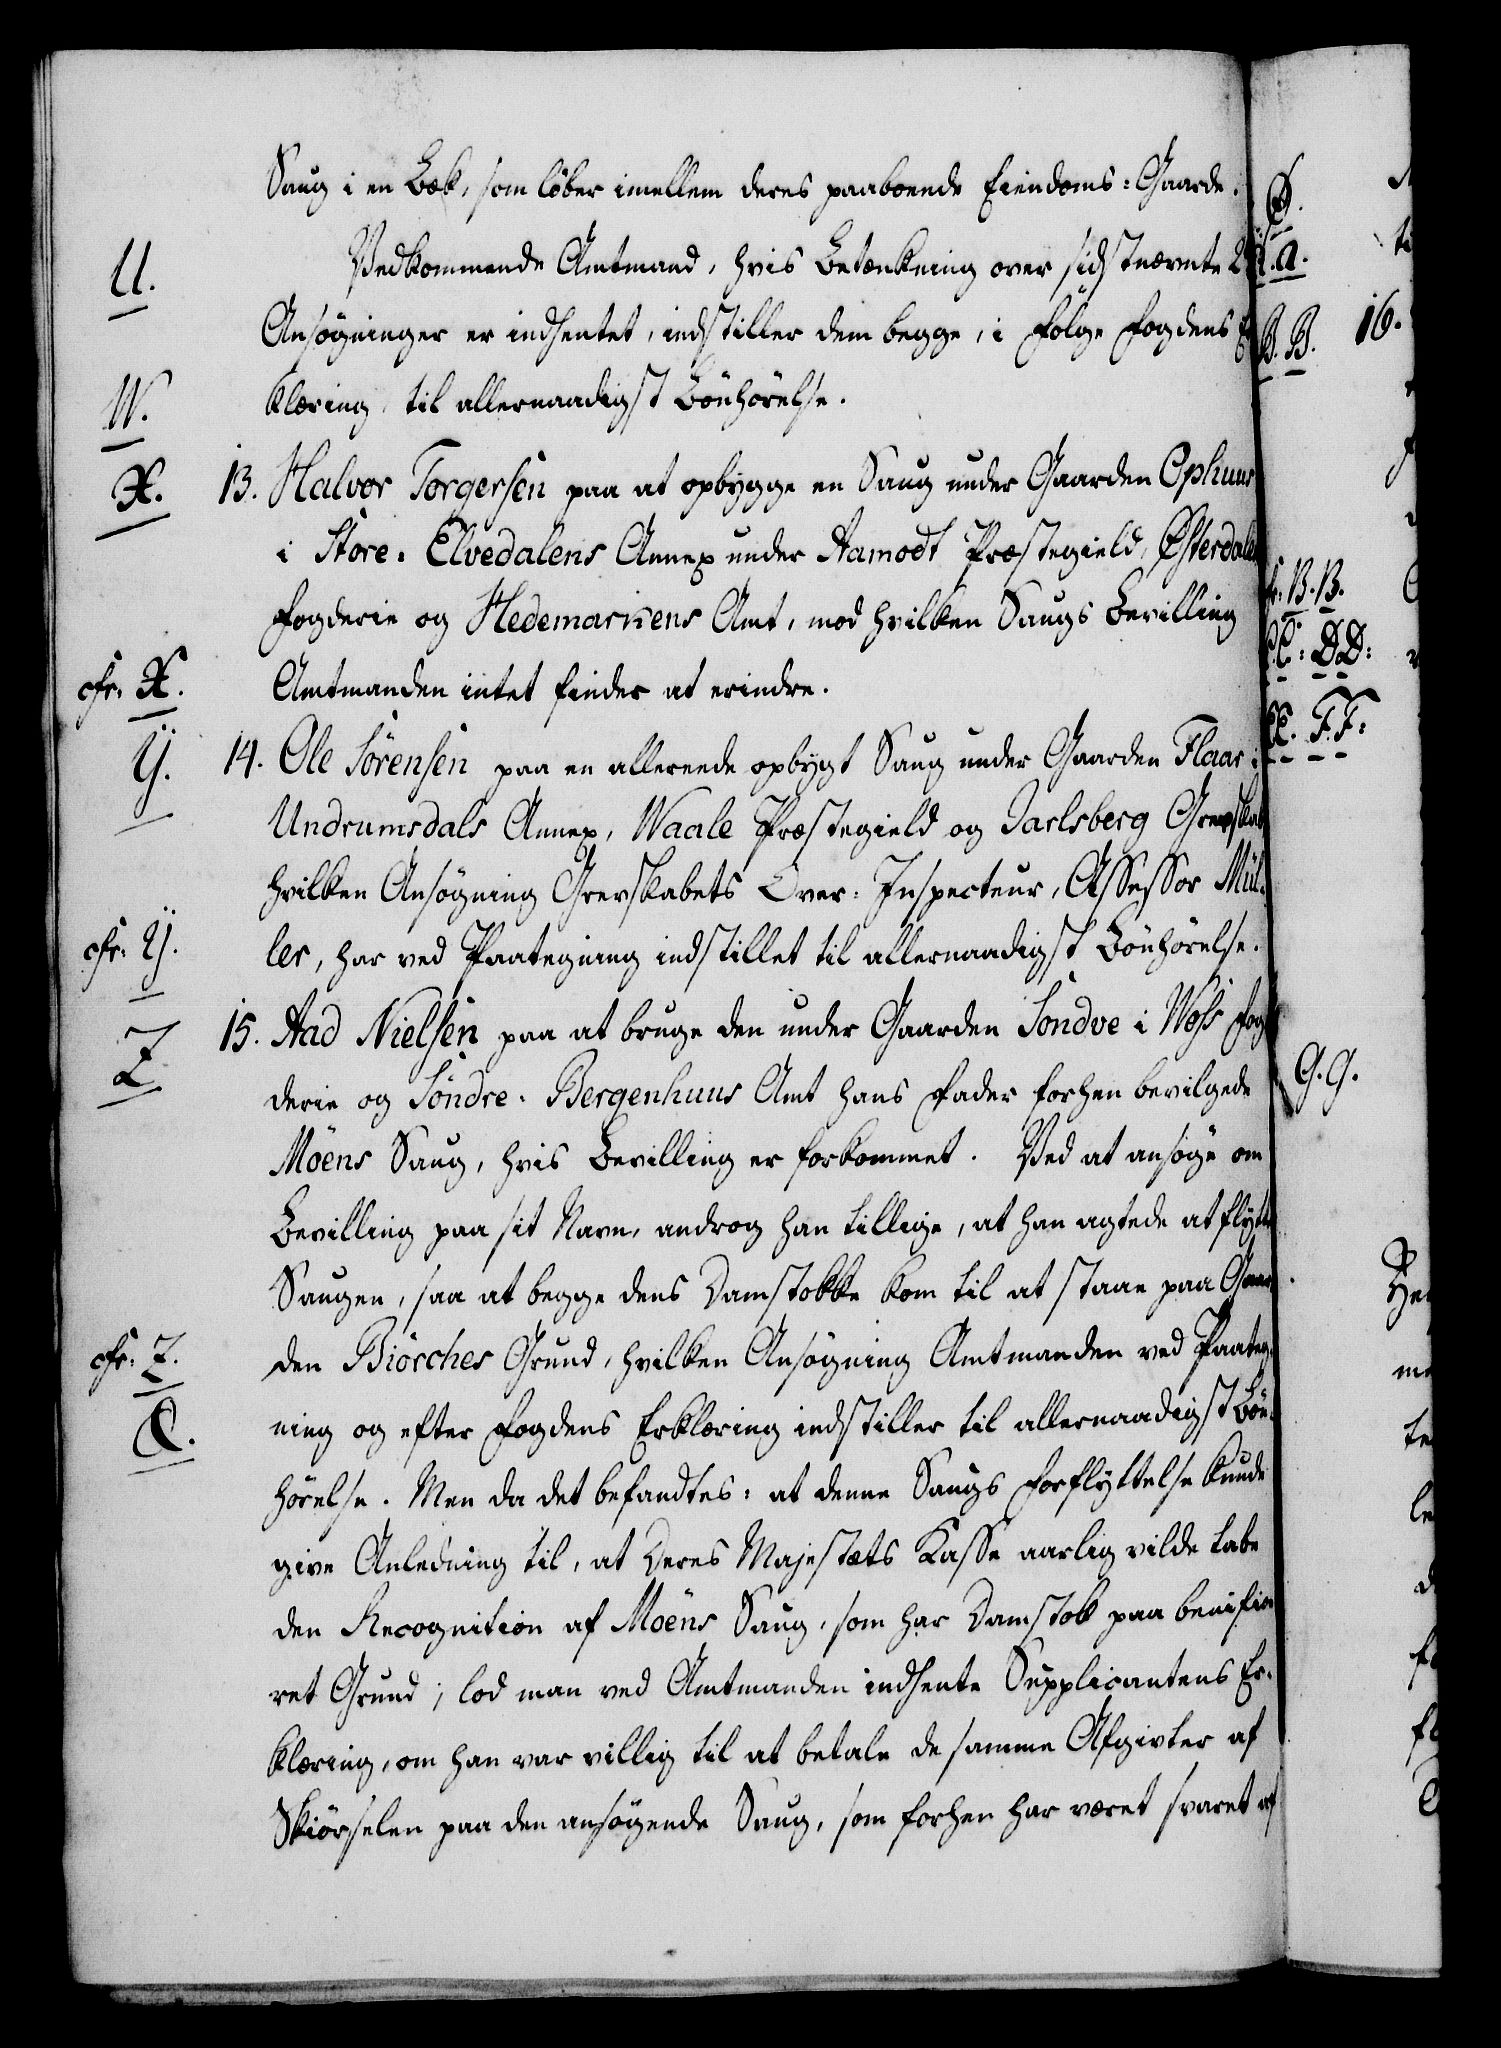 Saug i en Bæk, som løber imellem deres paaboende Eiendoms-Gaarde.
U.
Vedkommende Amtmand, hvis Betænkning over sidstnævnte 2
Ansøgninger er indhentet, indstiller dem begge, i Følge Fogdens Er
W.
klæring, til allernaadigst Bönhörelse.
X.
13. Halvor Torgersen paa at opbygge en Saug under Gaarden Ophuus
i Store-Elvedalens Annex under Aamodt Præstegield, Østerdalen
Fogderie og Hedemarkens Amt, mod hvilken Saugs Bevilling
cfr. X.
Amtmanden intet finder at erindre.
Ÿ.
14. Ole Sörensen paa en allereede opbygt Saug under Gaarden Flaar i
Undrumsdals Annex, Waale Præstegield og Jarlsberg Grevskab
hvilken Ansøgning Grevskabets Over-Inspecteur, Assessor Mül-
cfr. Ÿ.
ler, har ved Paategning indstillet til allernaadigst Bönhörelse.
Z
15. Aad Nielsen paa at bruge den under Gaarden Söndve i Woss Fog
derie og Söndre-Bergenhuus Amt hans Fader forhen bevilgede
Möens Saug, hvis Bevilling er forkommet. Ved at ansøge om
Bevilling paa sit Navn, androg han tillige, at han agtede at flytte
Saugen, saa at begge dens Damstokke kom til at staae paa Gaar
cfr. Z.
den Biörches Grund, hvilken Ansøgning Amtmanden ved Paateg-
ning og efter Fogdens Erklæring indstiller til allernaadigst Bön-
hörelse. Men da det befandtes: at denne Saugs Forflyttelse kunde
give Anledning til, at Deres Majestæts Kasse aarlig vilde tabe
den Recognition af Möens Saug, som har Damstok paa benifice
ret Grund; lod man ved Amtmanden indhente Supplicantens Er-
klæring, om han var villig til at betale de samme Afgivter af
Skiörselen paa den ansøgende Saug, som forhen har været svaret af
a.
B. B.
16.
B. B.
DD:
F.F:
G. G.